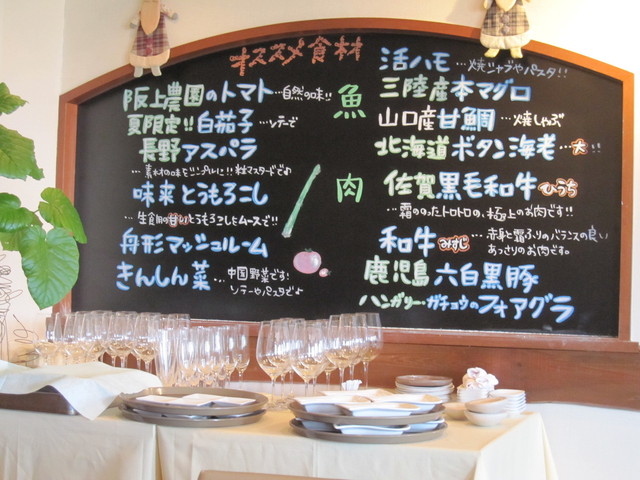 オススメ食材
阪上農園のトマト …自然の味!!
夏限定!! 白茄子 …ソテーで
長野アスパラ
…素材の味をシンプルに!! 粒マスタードで♪
味来とうもろこし
…生食用の甘いとうもろこしをムースで!!
舟形マッシュルーム
きんしん菜 …中国野菜です!
ソテーやパスタで♪
魚
/
肉
活ハモ …焼シャブやパスタ!!
三陸産本マグロ
山口産甘鯛 …焼しゃぶ
北海道ボタン海老…大!!
佐賀黒毛和牛 ひうち
…霜ののったトロトロの、極上のお肉です!!
和牛 みすじ …赤身と霜ふりのバランスの良い
あっさりのお肉です。
鹿児島六白黒豚
ハンガリー・ガチョウのフォアグラ